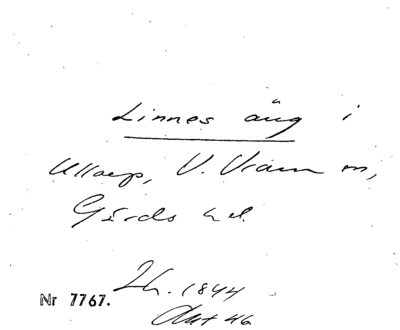 Linnes äng i
Ullarp, V. Vram m,
Gärds hd.
Lh. 1844
Akt 46
Nr 7767.